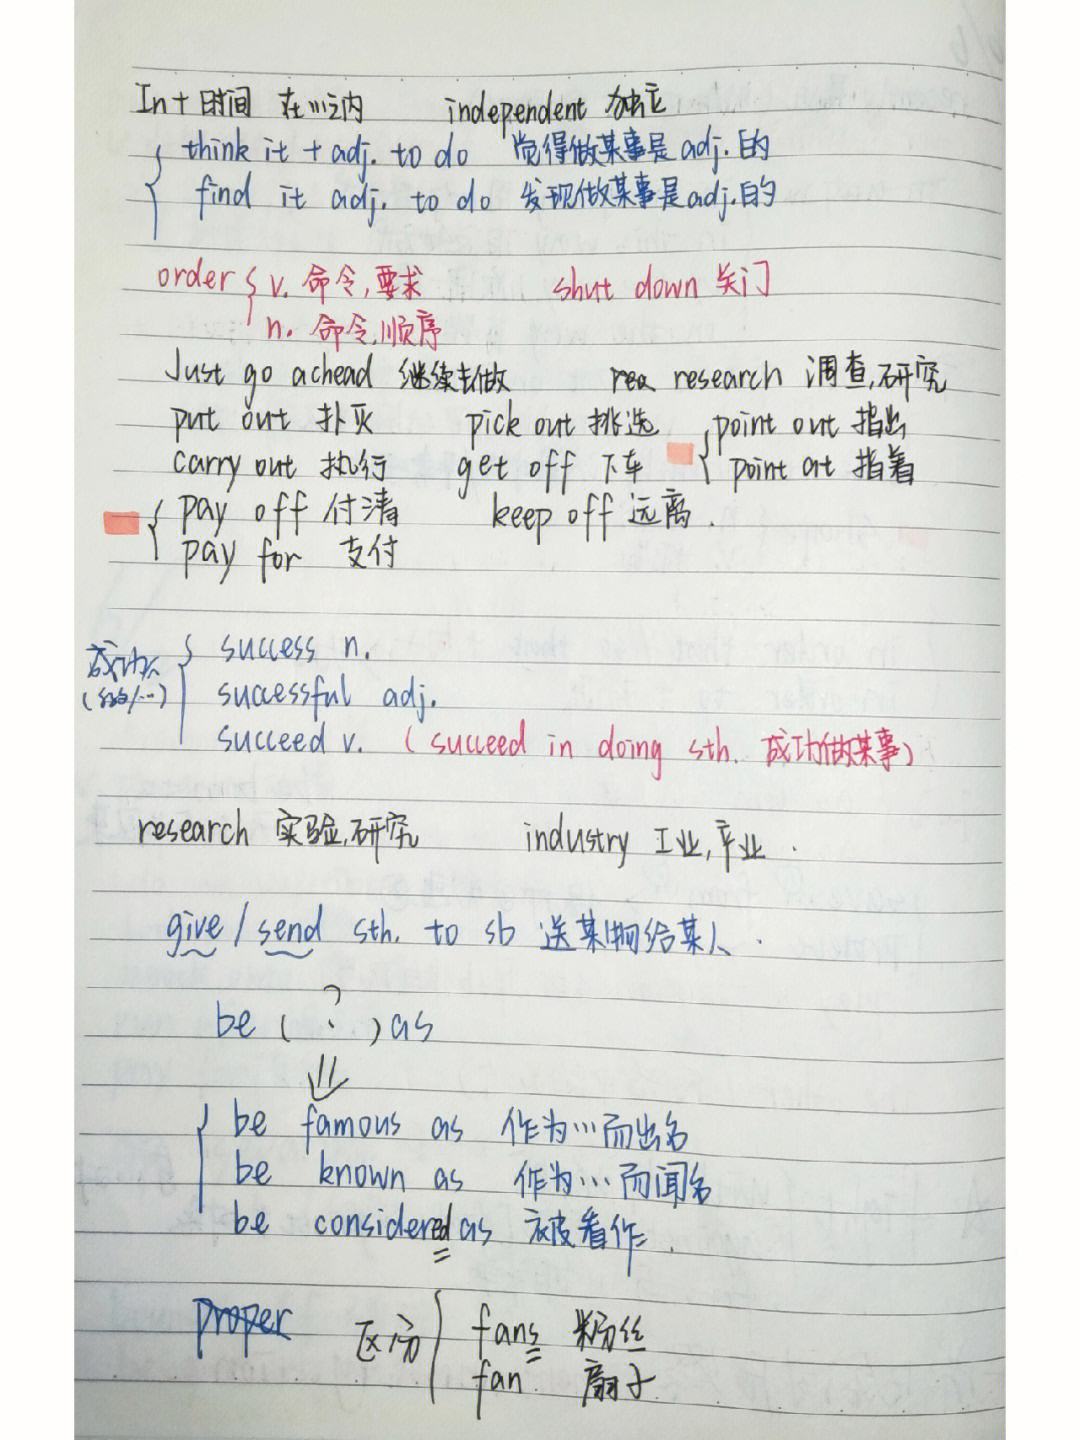 In + 时间 在…之内 independent 独立
think it + adj. to do 觉得做某事是 adj. 的
find it adj. to do 发现做某事是adj.的
order { v. 命令,要求 shut down 关门
n. 命令,顺序
Just go achead 继续去做 rea research 调查,研究
put out 扑灭 pick out 挑选 point out 指出
carry out 执行 get off 下车 point at 指着
pay off 付清 keep off 远离.
pay for 支付
成功 { success n.
successful adj.
succeed v. (succeed in doing sth. 成功做某事)
research 实验,研究 industry 工业,产业.
give / send sth. to sb 送某物给某人.
be ( ? ) as
be famous as 作为…而出名
be known as 作为…而闻名
be considered as 被看作.
proper 区分 { fans 粉丝
fan 扇子